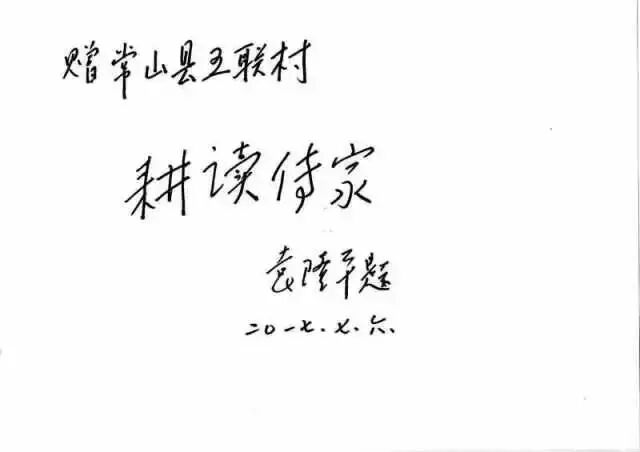 赠常山县五联村
耕读传家
袁隆平题
二〇一七.七.六.